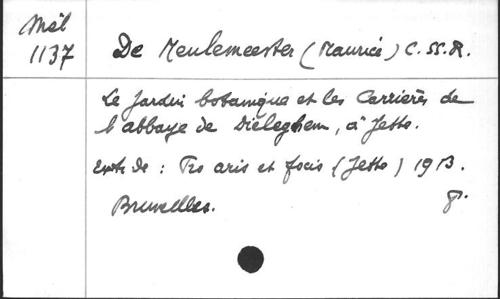 Mél
1137
De Meulemeester (Maurice) C.SS.R.
Le Jardin botanique et les Carrières de
l'abbaye de Dieleghem, à Jette.
Extr. de : Pro aris et focis (Jette) 1913.
Bruxelles. 8°.